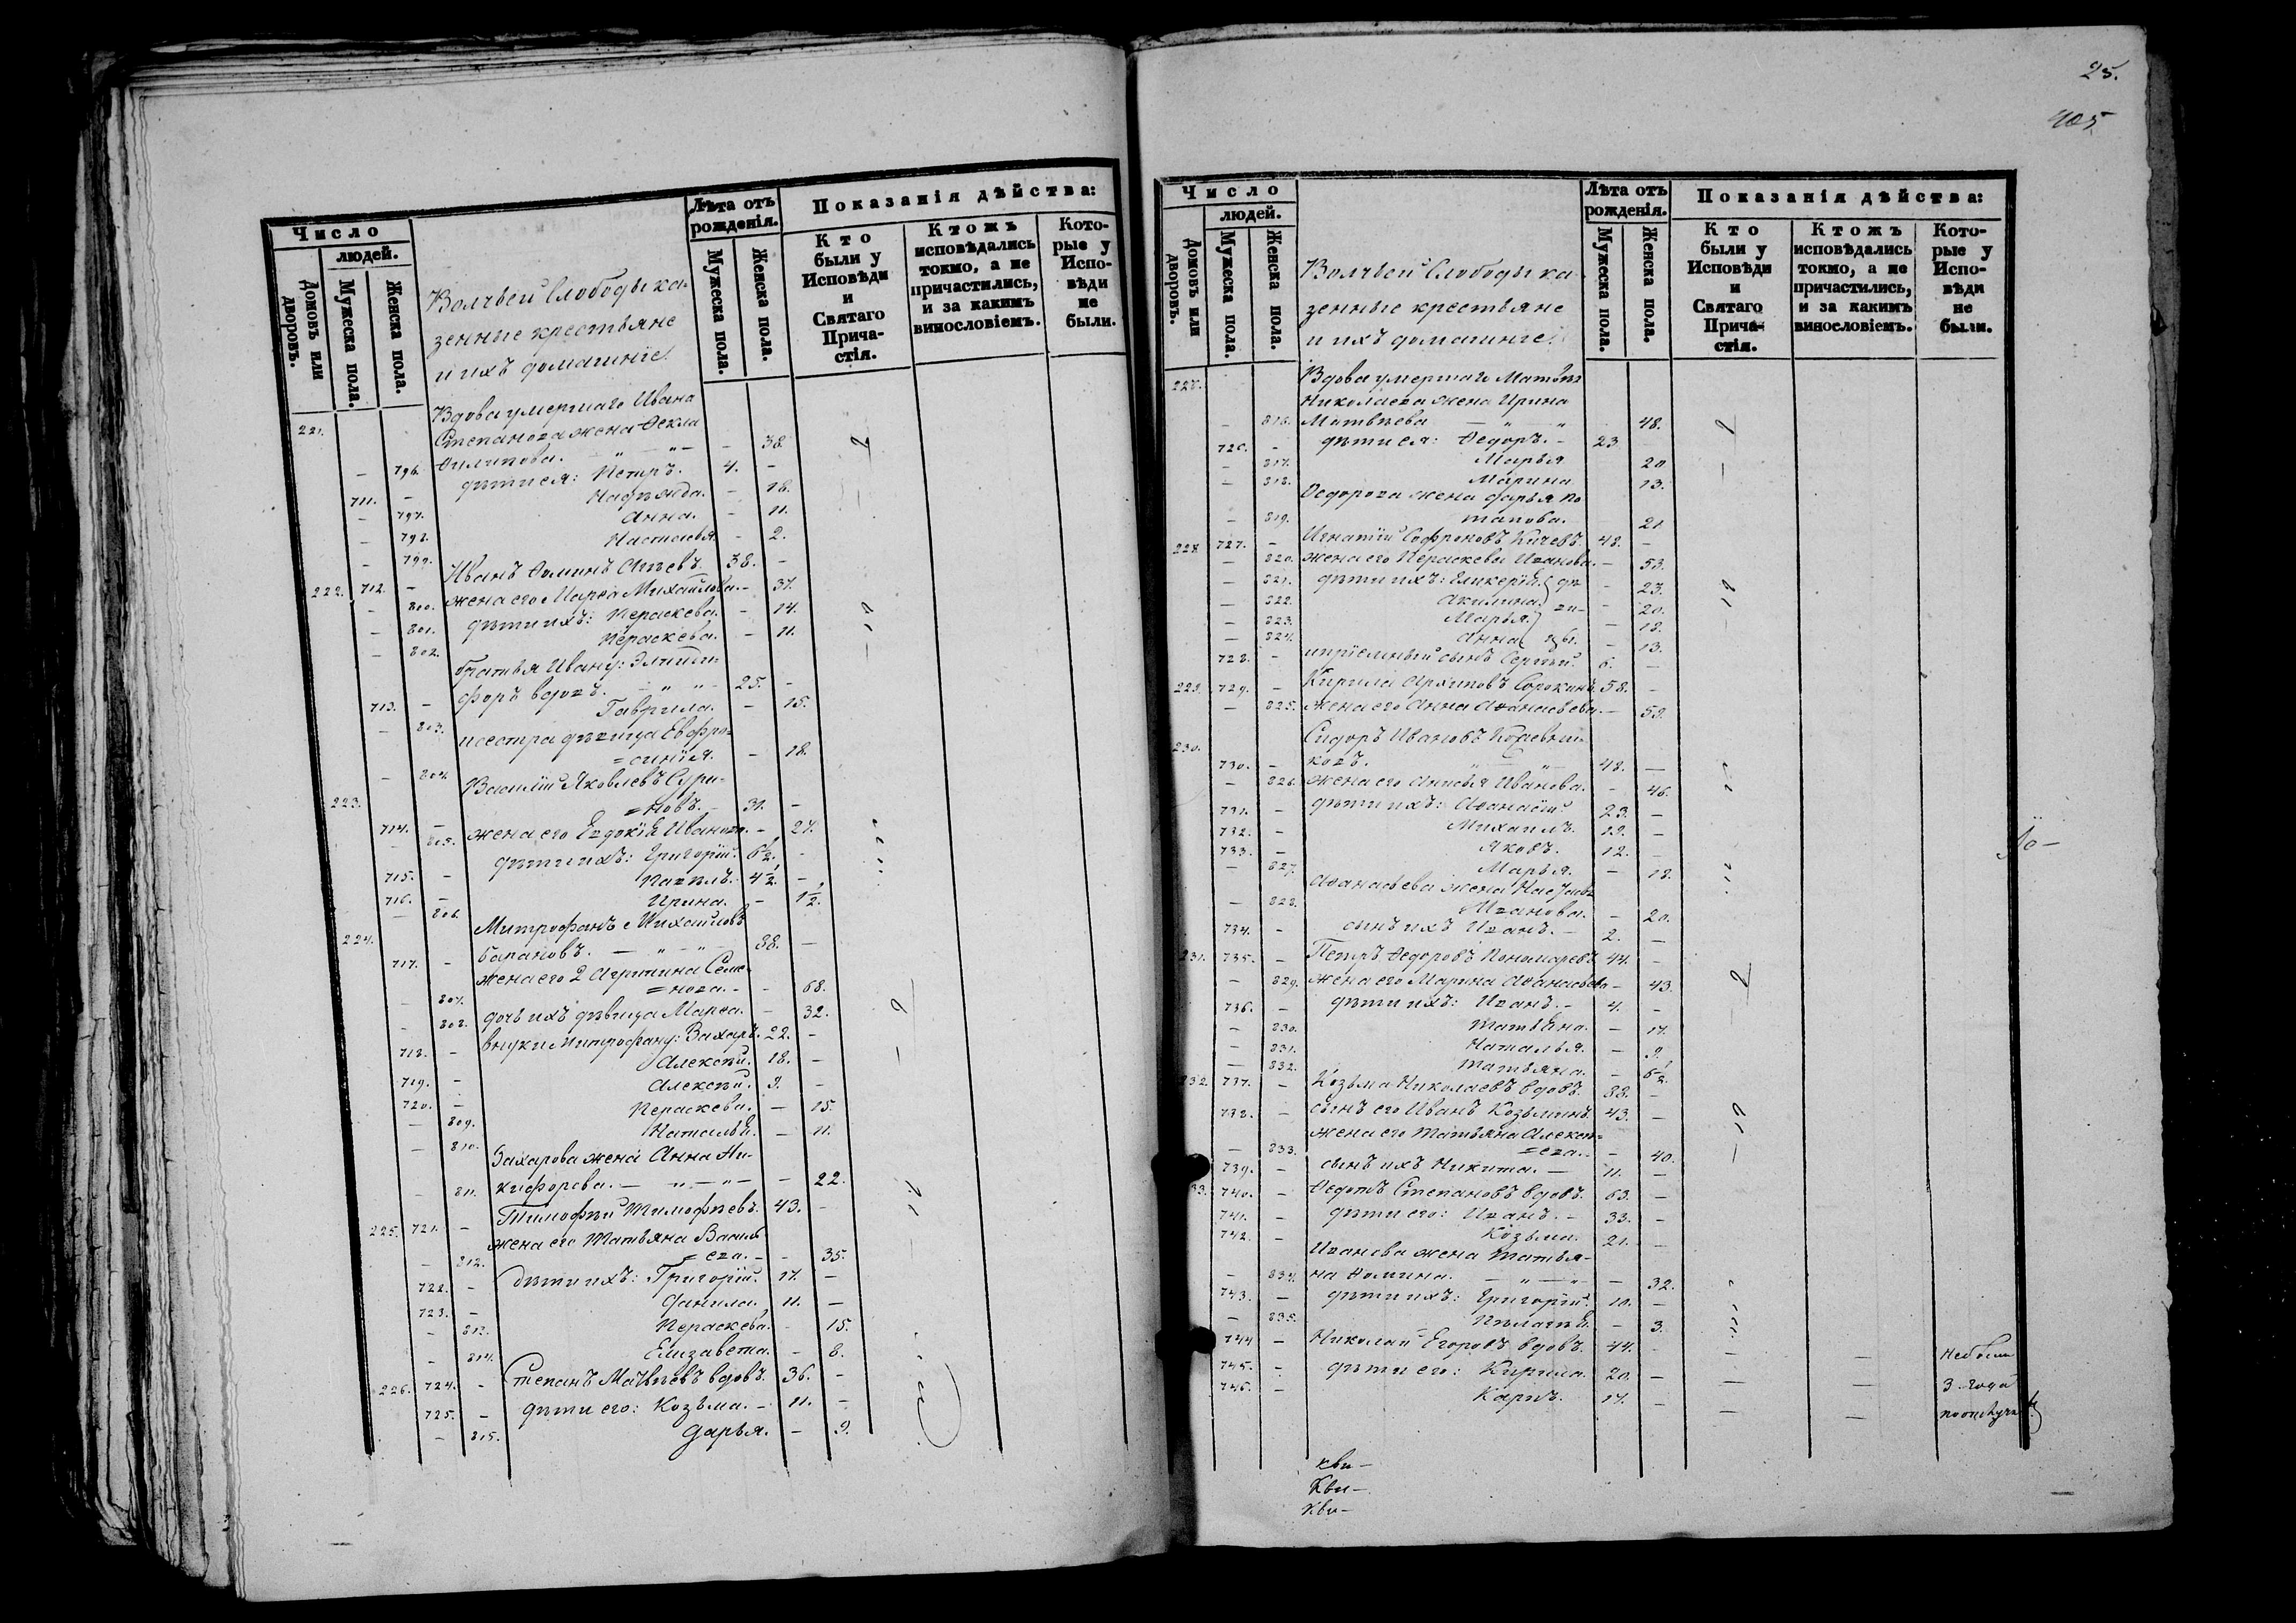 Число
людей.
Домовъ или дворовъ.
Мужеска пола.
Женска пола.
Волчьей Слободы ка-
зенные крестьяне
и ихъ домашніе.
Лѣта отъ рожденія.
Мужеска пола.
Женска пола.
Показанія дѣйства:
Кто были у Исповѣди и Святаго Прича-стія.
Ктожъ исповѣдались токмо, а не причастились, и за какимъ винословіемъ.
Кото-рые у Испо-вѣди не были.
221. Вдова умершаго Ивана
Степанова жена Фекла
– 796. Филипова. – " – " – – 38.
711. – дѣти ея: Петръ. 4. –
– 797. Надѣжда. – 18.
– 798. Анна. – 11.
– 799. Настасья. – 2.
222. 712. – Иванъ Фоминъ 38. –
– 800. жена его Марѳа Михайлова. – 37.
– 801. дѣти ихъ: Пераскева. – 14.
– 802. Пераскева. – 11.
братья Ивану:
713. – форъ вдовъ. – " " – 25. –
803. Гаврила. – 15.
и сестра дѣвица Евфро-
– 804. =синія. – 18.
223. Василій Яковлевъ Сури-
714. – =новъ. – 31. –
– 805. жена его Евдокія Иванова. – 27.
715. – дѣти ихъ: Григорій. 6½. –
716. – Павелъ. 4½. –
– 806. Ирина. – 1½.
224. Митрофанъ Михайловъ
717. – Барановъ. – " – " – 88. –
жена его 2 Агрипина Семе-
– 807. =нова. – – 68.
– 808. дочь ихъ дѣвица Марѳа. – 32.
718. – внуки Митрофану: Захаръ. 22. –
719. – Алексѣй. 18. –
720. – Алексѣй. 9. –
– 809. Пераскева. – 15.
– 810. Наталья. – 11.
Захарова жена Анна Ни-
– 811. кифорова. – " – " – – 22.
225. 721. – Тимофѣй Тимофѣевъ. 43. –
жена его Татьяна Василь
– 812. =ева. – – 35.
722. – дѣти ихъ: Григорій. 17. –
723. – Данила. 11. –
– 813. Пераскева. – 15.
– 814. Елизавета. – 8.
226. 724. – Степанъ Матвѣевъ вдовъ. 36. –
725. – дѣти его: Козьма. – 11. –
– 815. Дарья. – 9.
25.
405
Число
людей.
Домовъ или дворовъ.
Мужеска пола.
Женска пола.
Волчьей Слободы ка-
зенные крестьяне
и ихъ домашніе.
Лѣта отъ рожденія.
Мужеска пола.
Женска пола.
Показанія дѣйства:
Кто были у Исповѣди и Святаго Прича-стія.
Ктожъ исповѣдались токмо, а не причастились, и за какимъ винословіемъ.
Кото-рые у Испо-вѣди не были.
Вдова умершаго Матвѣя
Николаева жена Ирина
– 816. Матвѣева – " – " 48.
726. – дѣти ея: Федоръ. – 23
– 817. Марья 20
– 818. Марина 13.
Федорова жена Дарья По
– 819. тапова. – 21
228. 727. – Игнатій Софроновъ 48. –
– 820. жена его Пераскева Иванова. – 53.
– 821. дѣти ихъ: Гликерія. дѣ – 23.
– 822. Акилина. ви– – 20.
– 823. Марья. – 18.
– 824. Анна цы. – 13.
728. – и пріемный сынъ Сергѣй. 6. –
229. 729. – Кирила Архиповъ Сорокинъ. 58. –
– 825. жена его Анна Аѳанасьева. – 59.
230. Сидоръ Ивановъ
730. – ковъ. 48. –
– 826. жена его Анисья Иванова. – 46.
731. – дѣти ихъ: Аѳанасій 23. –
732. – Михаилъ. 19. –
733. – Яковъ. 12. –
– 827. Марья. – 18.
Аѳанасьева жена Настасья
– 828. Иванова. – 20.
734. – сынъ ихъ Иванъ. – 2. –
231. 735. – Петръ Федоровъ Пономаревъ. 44. –
– 829. жена его Марина Аѳанасьева – 43.
736. – дѣти ихъ: Иванъ. – 4. –
– 830. Татьяна. – 17.
– 831. Наталья. – 9.
– 832. Татьяна. – 6½.
232. 737. – Козьма Николаевъ вдовъ. 88. –
738. – сынъ его Иванъ Козьминъ. 43. –
жена его Татьяна Алексѣ=
– 833. =ева. – 40.
739. – сынъ ихъ Никита. – 11. –
33. 740. – Федотъ Степановъ вдовъ. 63. –
741. – дѣти его: Иванъ. – 33. –
742. – Козьма. 21. –
Иванова жена Татья-
– 834. на Фомина. – " – " – – 32.
743. – дѣти ихъ: Григорій. 10. –
– 835. Пелагія. – 3.
744 – Николай Егоровъ вдовъ. 44. – – – Небыли
745. – дѣти его: Кирила. 20. – – – 3 года
746. – Карпъ. 17. – – –
кви–
Кви–
Кви–